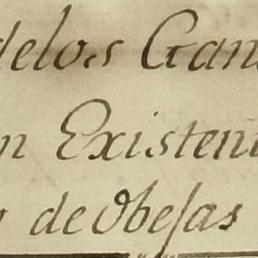 delos Gan
n Existen
y de Obejas